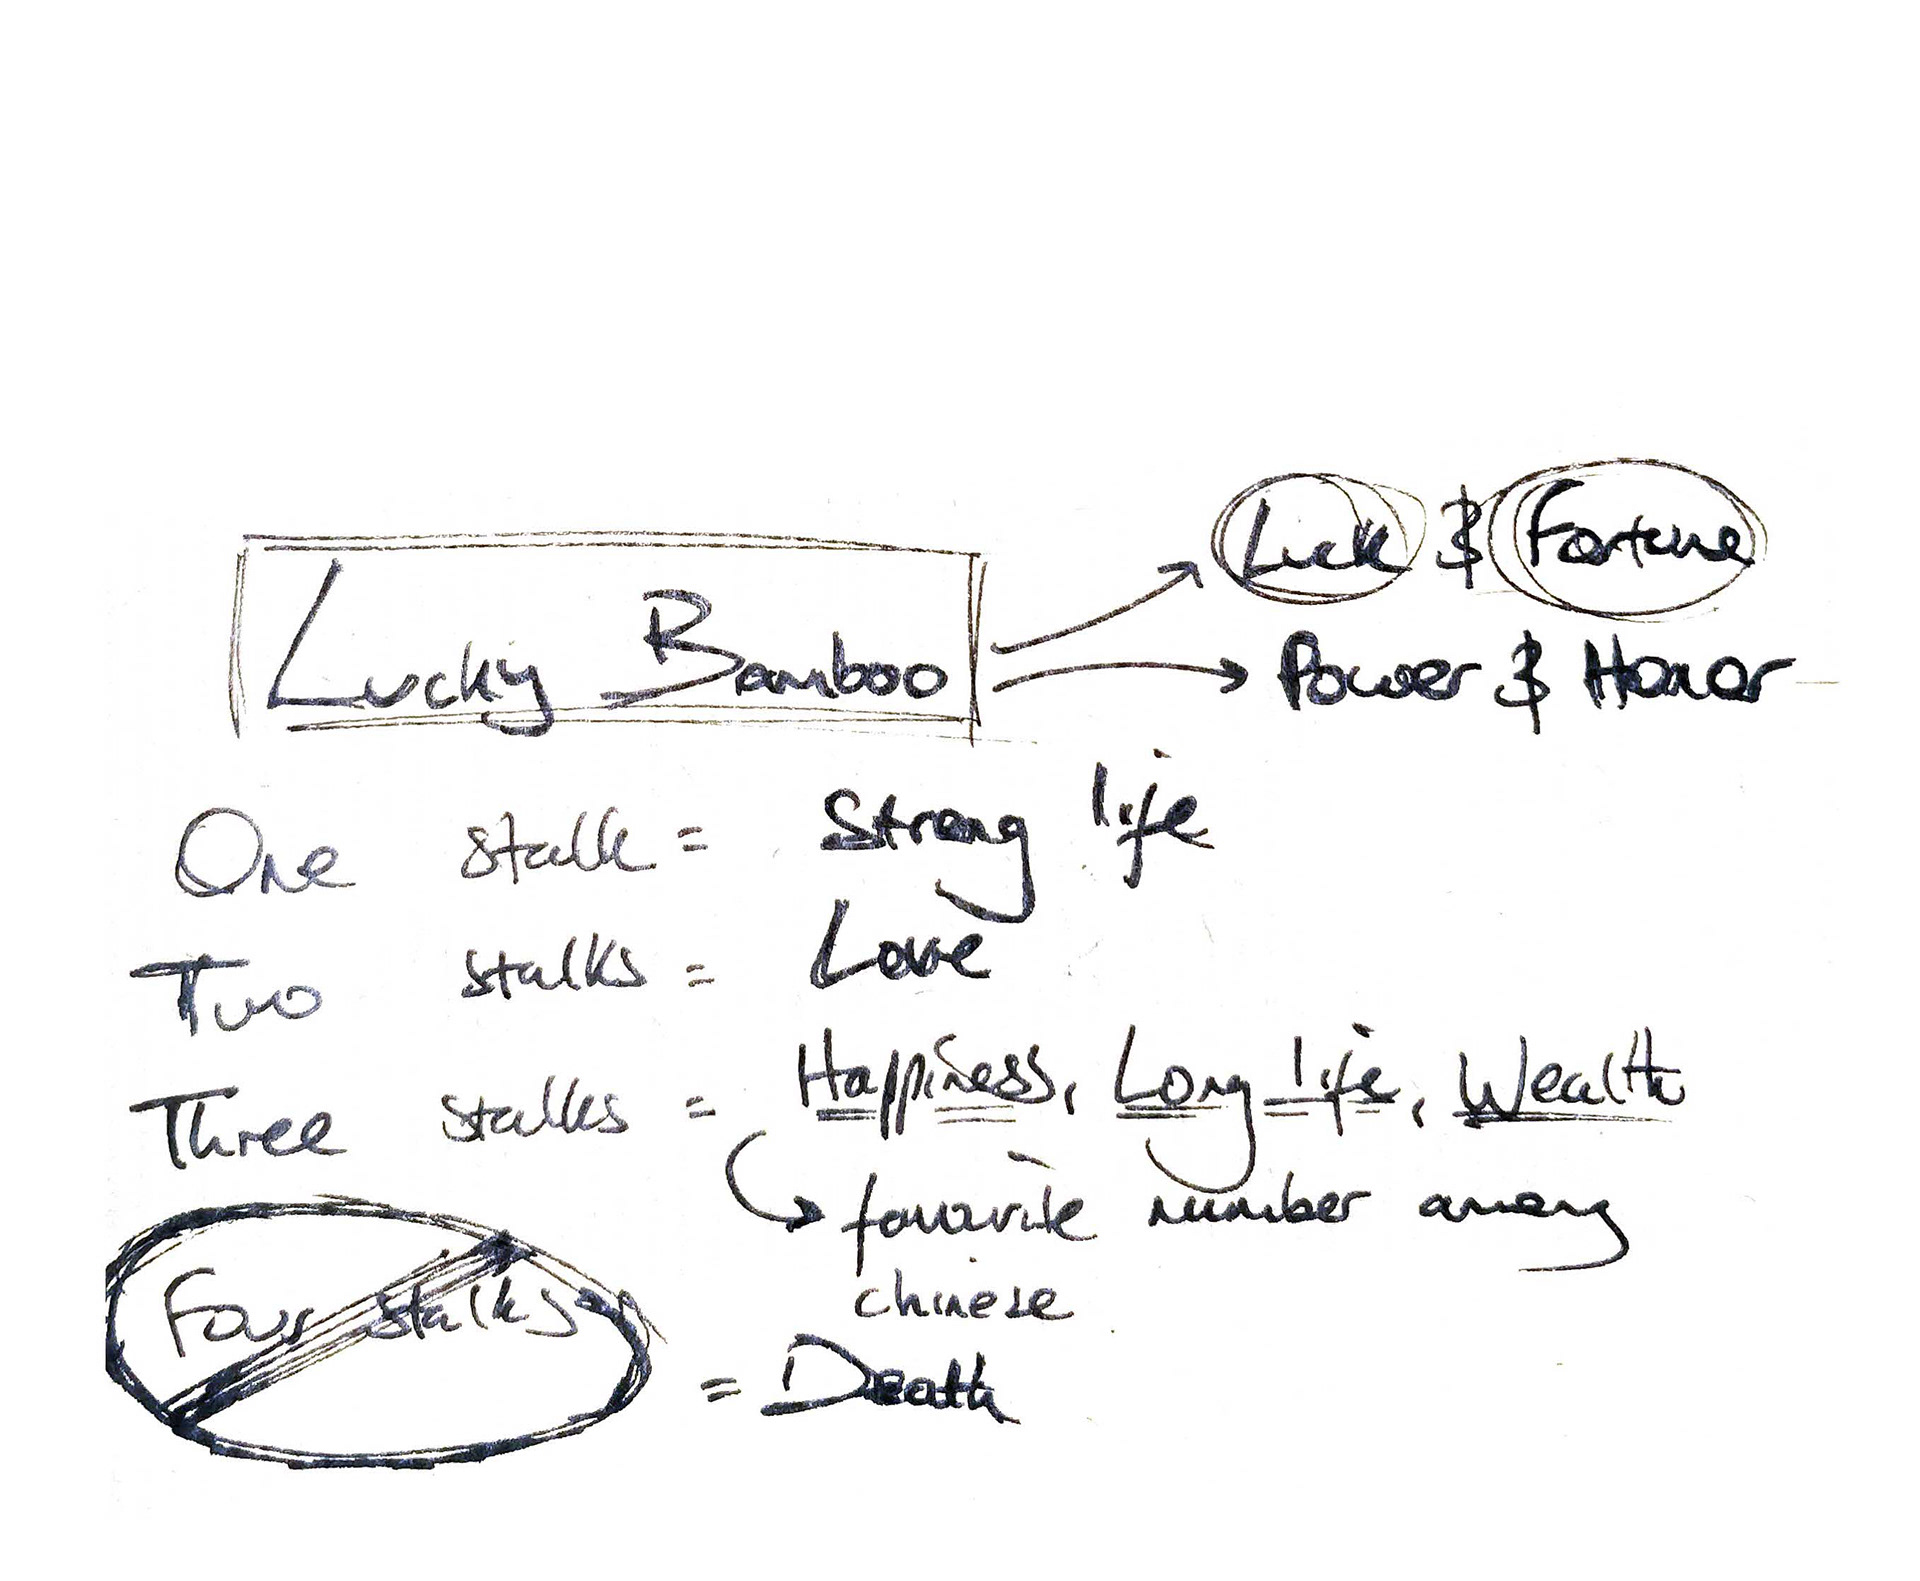 Luck & Fortune
Lucky Bamboo
Power & Honor
One stalk = Strong life
Two stalks = Love
Three stalks = Happiness, Long life, Wealth
favorite number among
chinese
Four stalks
= Death